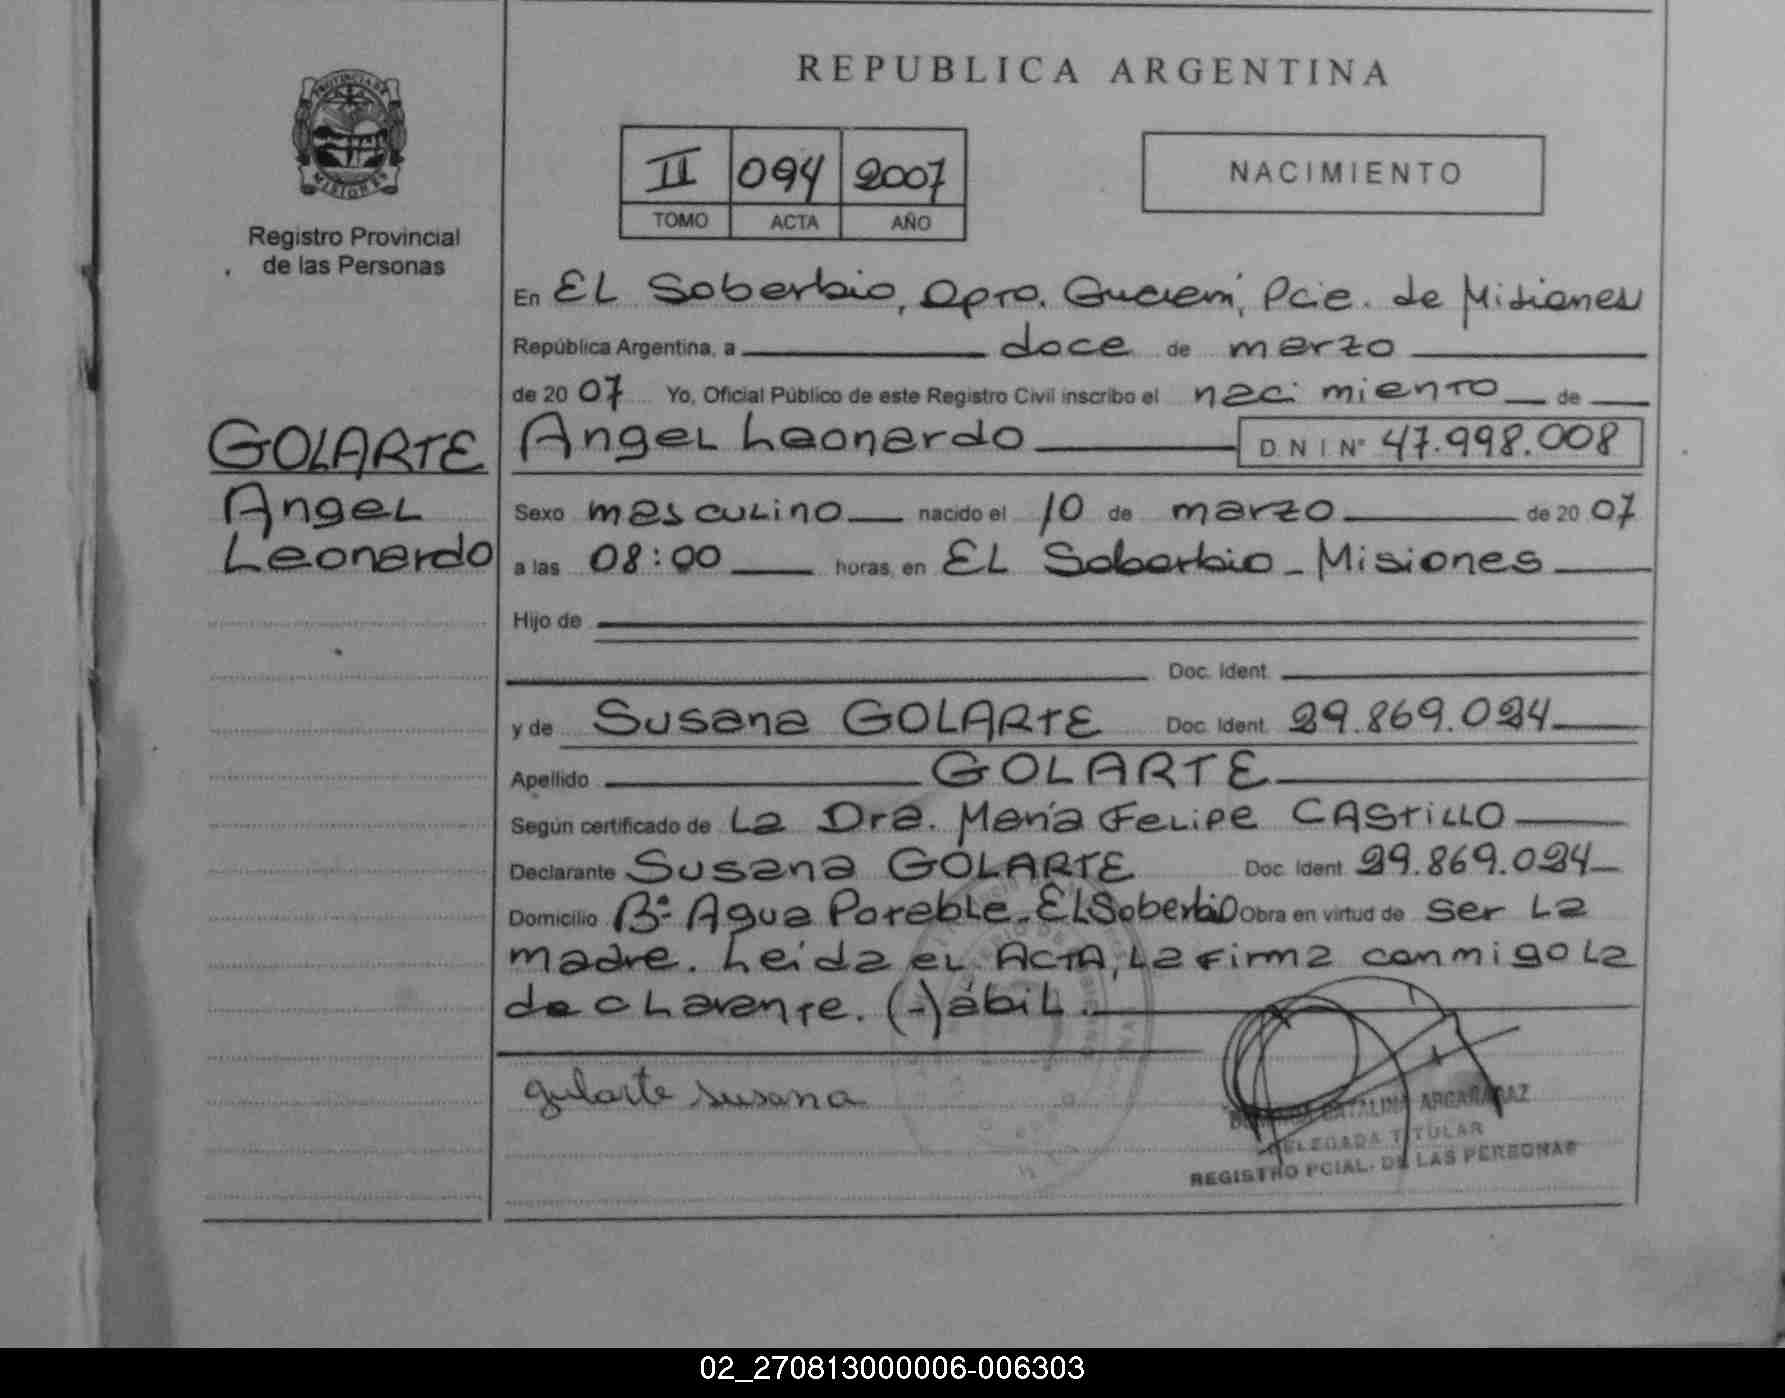 PROVINCIA DE
MISIONES
Registro Provincial
de las Personas
GOLARTE
Angel
Leonardo
REPUBLICA ARGENTINA
II 094 2007
TOMO ACTA AÑO
NACIMIENTO
En EL Soberbio, Dpto. Guaraní, Pcie. de Misiones
República Argentina, a doce de marzo
de 20 07 Yo, Oficial Público de este Registro Civil inscribo el nacimiento de
Angel Leonardo D N I Nº 47.998.008
Sexo masculino nacido el 10 de marzo de 20 07
a las 08:00 horas, en EL Soberbio - Misiones
Hijo de
Doc. Ident.
y de Susana GOLARTE Doc. Ident. 29.869.024
Apellido GOLARTE
Según certificado de La Dra. María Felipe CASTILLO
Declarante Susana GOLARTE Doc. Ident. 29.869.024
Domicilio Bº Agua Potable - El Soberbio Obra en virtud de ser La
madre. Leída el ACTA, La firma conmigo La
declarante. (-) ábil.
gularte susana
CATALINA ARGAÑARAZ
DELEGADA TITULAR
REGISTRO PCIAL. DE LAS PERSONAS
02_270813000006-006303